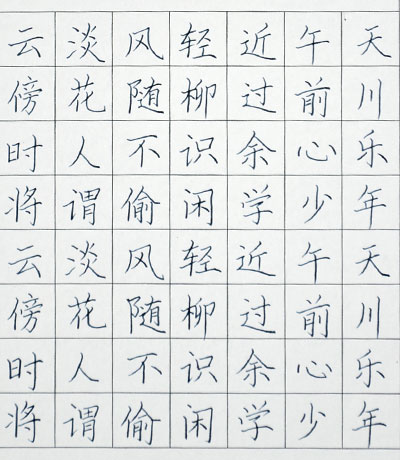 云淡风轻近午天
傍花随柳过前川
时人不识余心乐
将谓偷闲学少年
云淡风轻近午天
傍花随柳过前川
时人不识余心乐
将谓偷闲学少年